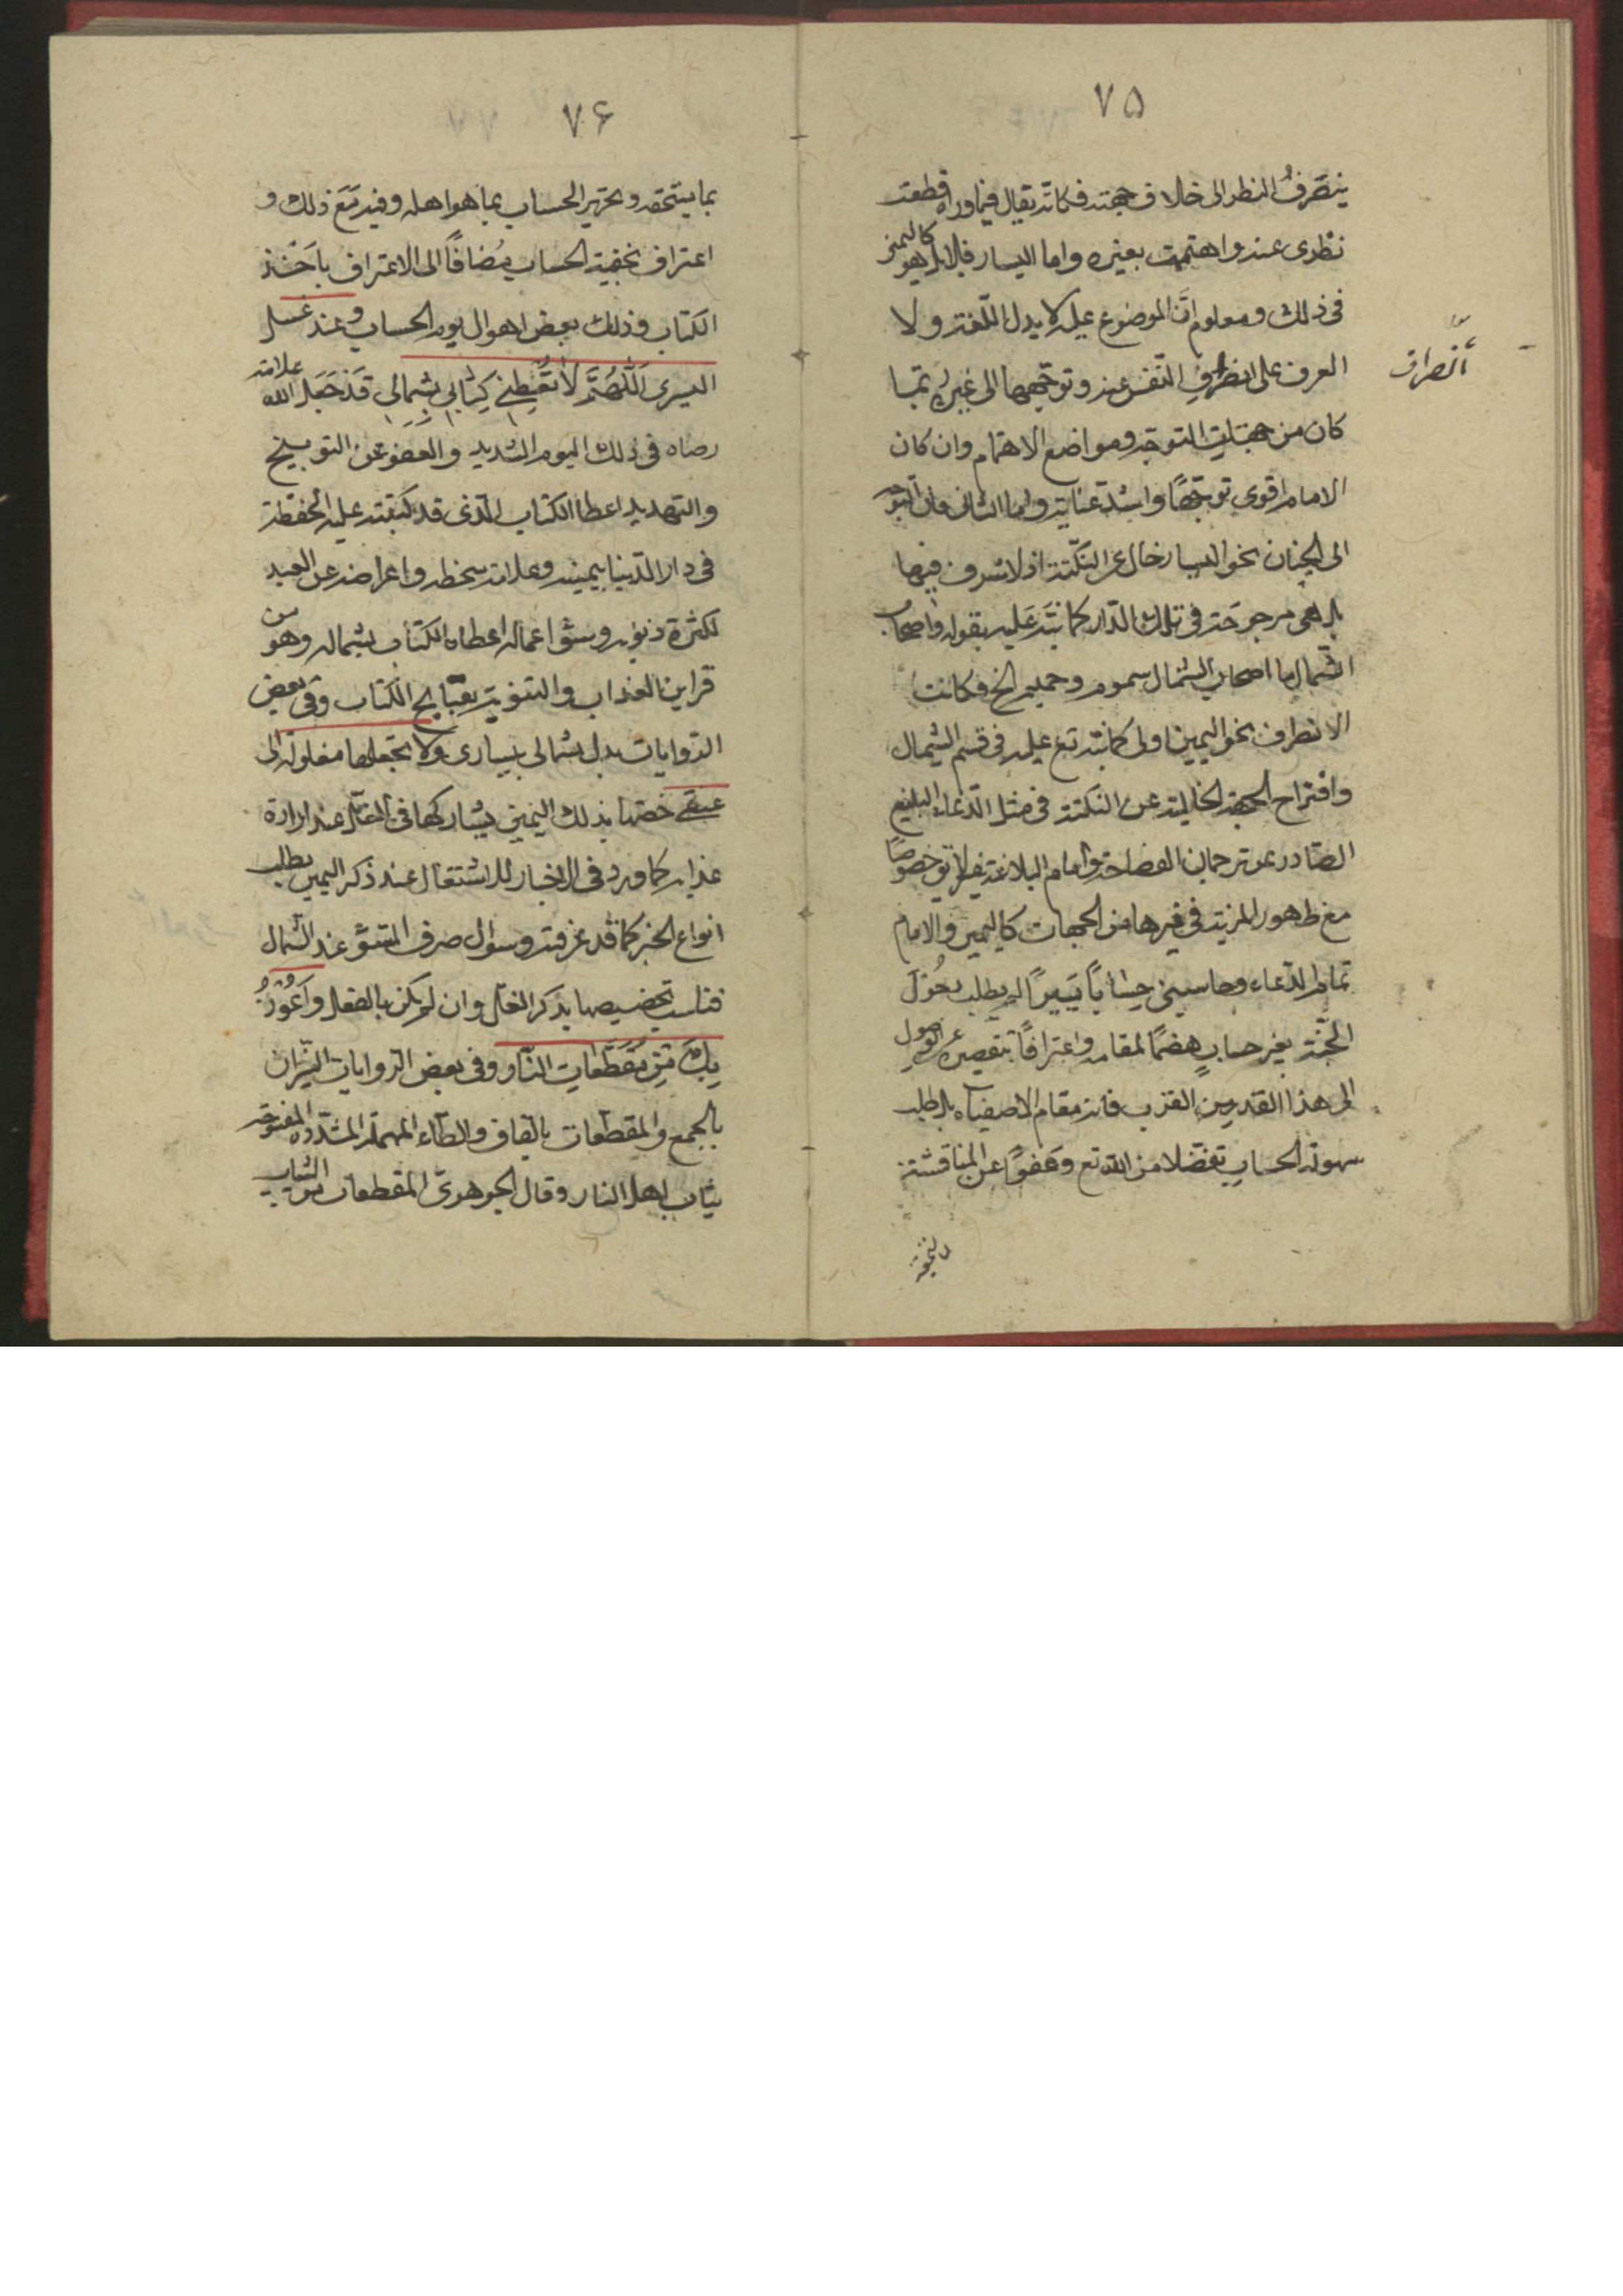 ۷۵
ينصرف النظر الى خلاف جهته فكانه يقال فيما وراه قطعت
نظرى عنه واهتممت بغيره واما اليسار فلا بل هو كاليمين
فى ذلك ومعلوم ان الموضوع عليه لا يدل اللغة ولا
العرف على انصراف النفس عنه وتوجهها الى غيره بما
انصراف
كان من جهات التوجه ومواضع الاهتمام وان كان
الامام اقوى توجهًا واشد عناية واما الثانى فان التوجه
الى الجنان نحو اليسار خال عن النكتة اذ لا شرف فيها
بل هى مرجوحة فى تلك الدار كما نبه عليه بقوله واصحاب
الشمال ما اصحاب الشمال سموم وحميم الخ فكانت
الانصراف نحو اليمين اولى كما نبه تع عليه فى قسم الشمال
واقتراح الجهة الخالية عن النكتة فى مثل الدعاء البليغ
الصادر عن ترجمان الفصاحة وامام البلاغة غير لايق خصوصًا
مع ظهور المزية فى غيرها من الجهات كاليمين والامام
تمام الدعاء وحاسبنى حِسَابًا يَسِيرًا لم يطلب دخول
الجنة بغير حساب هضمًا لمقامه واعترافًا بتقصيره عن الوصول
الى هذا القدر من القرب فانه مقام الاصفياء بل طلب
سهولة الحساب تفضلا من الله تع وعفوًا عن المناقشة
۷۶
بما يستحقه وتحرير الحساب بما هو اهله وفيه مَعَ ذلك و
اعتراف بحقية الحساب مُضافًا الى الاعتراف باخذ
الكتاب وذلك بعض اهوال يوم الحساب وعند غسل
اليسرى اَللّهُمَّ لا تُعْطِنى كِتابى بِشِمالى قد جَعَل الله علامة
رضاه فى ذلك اليوم الشديد والعفو عن التوبيخ
والتهديد اعطا الكتاب الذى قد كتبته عليه الحفظة
فى دار الدنيا بيمينه وعلامة سخطه واعراضه عن العبد
لكثرة ذنوبه وسوء اعماله اعطاه الكتاب بشماله وهو من
قراين العذاب والتنويه بقبايح الكتاب وفى بعض
الروايات بدل بشمالى بيسارى ولا تجعلها مغلولة الى
عنقى خصها بذلك اليمين يشاركها فى الغل عند ارادة
عذابه كما ورد فى الاخبار للاشتغال عند ذكر اليمين بطلب
انواع الخير كما قد عرفته وسؤال صرف السوء عند الشمال
فناسب تخصيصها بذكر الغل وان لم يكن بالفعل وَاَعُوذُ
بِكَ مِن مُقَطَّعاتِ النّار وفى بعض الروايات النيران
بالجمع والمقطعات بالقاف والطاء المهملة المشددة المفتوحة
ثياب اهل النار وقال الجوهرى المقطعات من الثياب